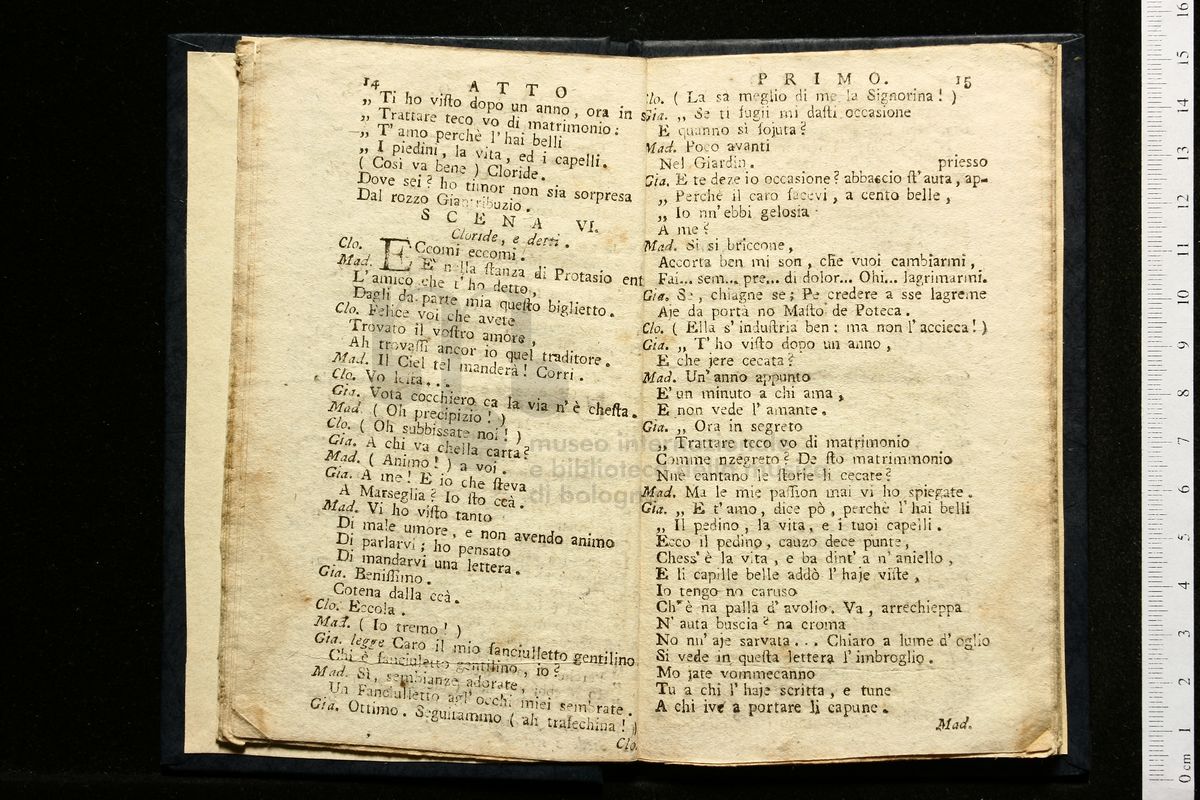 14 ATTO
„ Ti ho visto dopo un anno, ora in s
„ Trattare teco vo di matrimonio:
„ T'amo perchè l'hai belli
„ I piedini, la vita, ed i capelli.
( Così va bene ) Cloride.
Dove sei? ho timor non sia sorpresa
Dal rozzo Giantribuzio.
SCENA VI.
Cloride, e detti.
Clo. ECcomi eccomi!
Mad. E' nella stanza di Protasio ent
L'amico che t'ho detto,
Dagli da parte mia questo biglietto.
Clo. Felice voi che avete
Trovato il vostro amore,
Ah trovassi ancor io quel traditore.
Mad. Il Ciel tel manderà! Corri.
Clo. Vo lesta...
Gia. Vota cocchiero ca la via n'è chesta.
Mad. ( Oh precipizio! )
Clo. ( Oh subbissate noi! )
Gia. A chi va chella carta?
Mad. ( Animo! ) a voi.
Gia. A me! E io che steva
A Marseglia? Io sto ccà.
Mad. Vi ho visto tanto
Di male umore, e non avendo animo
Di parlarvi; ho pensato
Di mandarvi una lettera.
Gia. Benissimo.
Cotena dalla ccà.
Clo. Eccola.
Mad. ( Io tremo! )
Gia. legge Caro il mio fanciulletto gentilino
Chi è fanciulletto gentilino, io?
Mad. Sì, sembianze adorate,
Un Fanciulletto agl'occhi miei sembrate.
Gia. Ottimo. Seguitammo ( ah trafechina! )
Clo.
PRIMO. 15
Clo. ( La sa meglio di me la Signorina! )
Gia. „ Se ti fugii mi dasti occasione
E quanno si fojuta?
Mad. Poco avanti
Nel Giardin. priesso
Gia. E te deze io occasione? abbascio st'auta, ap-
„ Perchè il caro facevi, a cento belle,
„ Io nn'ebbi gelosia
A me?
Mad. Si si briccone,
Accorta ben mi son, che vuoi cambiarmi,
Fai... sem... pre... di dolor... Ohi... lagrimarmi.
Gia. Se, chiagne se; Pe credere a sse lagreme
Aje da portà no Masto de Poteca.
Clo. ( Ella s'industria ben: ma non l'accieca! )
Gia. „ T'ho visto dopo un anno,
E che jere cecata?
Mad. Un'anno appunto
E' un minuto a chi ama,
E non vede l'amante.
Gia. „ Ora in segreto
„ Trattare teco vo di matrimonio
Comme nzegreto? De sto matrimmonio
Nne cantano le storie li cecate?
Mad. Ma le mie passion mai vi ho spiegate.
Gia. „ E t'amo, dice pò, perchè l'hai belli
„ Il pedino, la vita, e i tuoi capelli.
Ecco il pedino, cauzo dece punte,
Chess'è la vita, e ba dint'a n'aniello,
E li capille belle addò l'haje viste,
Io tengo no caruso
Ch'è na palla d'avolio. Va, arrechieppa
N'auta buscia? na croma
No nn'aje sarvata... Chiaro a lume d'oglio
Si vede in questa lettera l'imbroglio.
Mo jate vommecanno
Tu a chi l'haje scritta, e tune
A chi ive a portare li capune.
Mad.
museo internazionale
e biblioteca della musica
di bologna